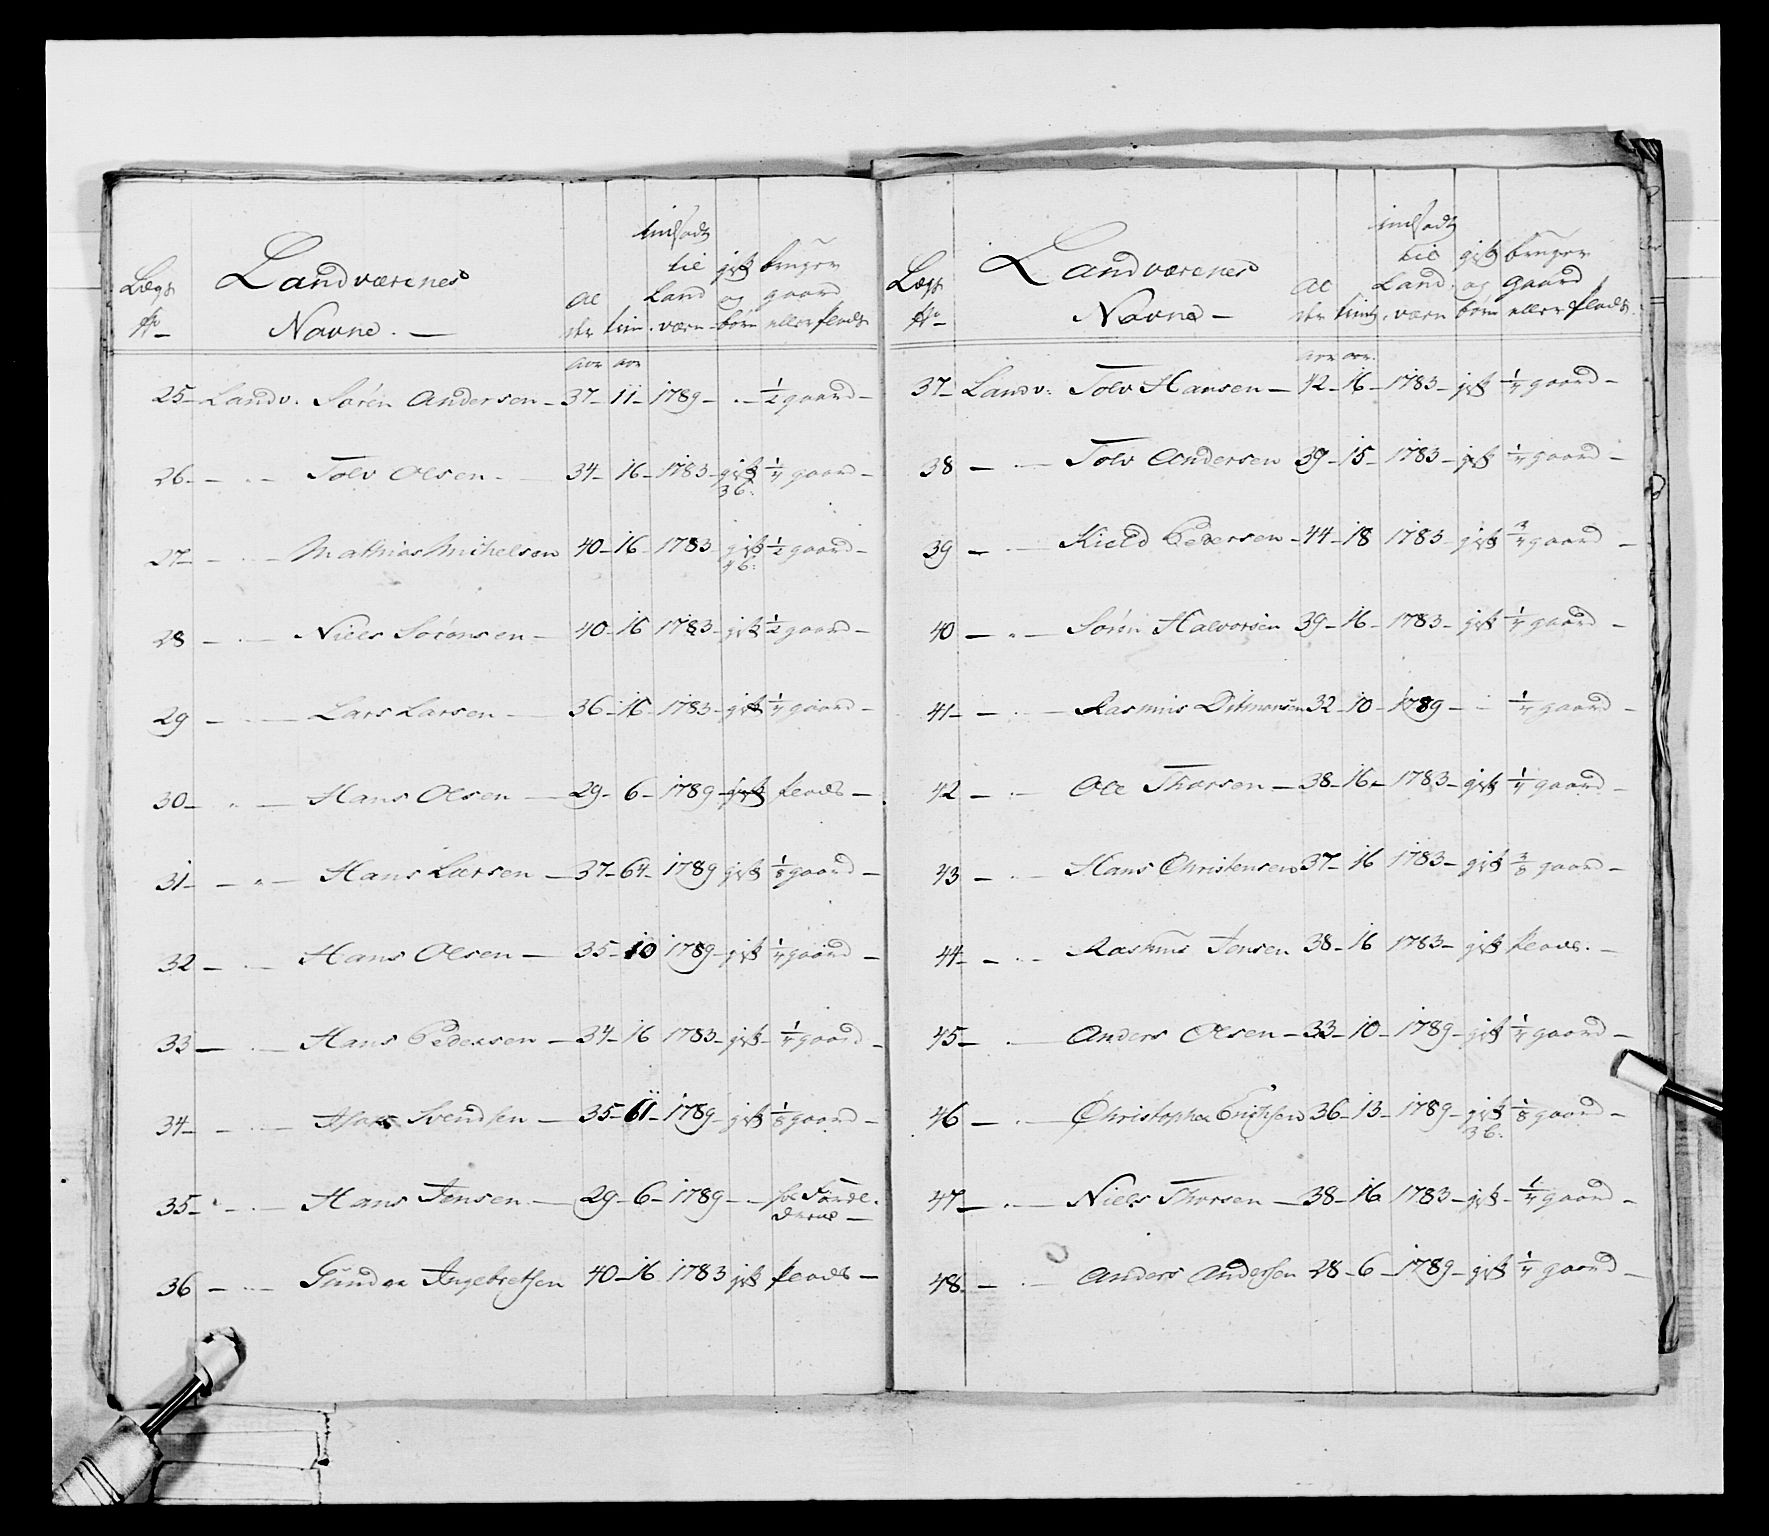 Lægs No
Landværenes Navne.
al der
tien
indsadt til Land værn
gift og börn
bruger gaard eller plads
aar aar
25 Landv: Sören Andersen 37 11 1789 1/2 gaard
26 Tolv Olsen 34 16 1783 gift 3 b: 1/4 gaard
27 Mathias Mikelsen 40 16 1783 gift 4 b: 1/2 gaard
28 Niels Sörensen 40 16 1783 gift 1/2 gaard
29 Lars Larsen 36 16 1783 gift 1/4 gaard
30 Hans Olsen 29 6 1789 gift plads
31 Hans Larsen 37 1789 gift 1/8 gaard
32 Hans Olsen 35 10 1789 gift 1/4 gaard
33 Hans Pedersen 34 16 1783 gift 1/4 gaard
34 Svendsen 35 11 1789 gift 1/8 gaard
35 Hans Jensen 29 6 1789
36 Gunder Ingebretsen 40 16 1783 gift plads
Lægs No
Landværenes Navne
al der
tient
indsadt til Land værn
gift og börn
bruger gaard eller plads
aar aar.
37 Landv: Tolv Hansen 42 16 1783 gift 1/4 gaard
38 Tolv Andersen 39 15 1783 gift 1/4 gaard
39 Kield Pedersen 44 18 1783 gift 3/4 gaard
40 Sören Halvorsen 39 16 1783 gift 1/4 gaard
41 Rasmus Ditmansen 32 10 1789 1/4 gaard
42 Ole Thorsen 38 16 1783 gift 1/4 gaard
43 Hans Christensen 37 16 1783 gift 3/8 gaard
44 Rasmus Jensen 38 16 1783 gift plads.
45 Anders Olsen 33 10 1789 gift 1/4 gaard
46 Christopher Erichsen 36 13 1789 gift 3 b: 1/8 gaard
47 Niels Thorsen 38 16 1783 gift 1/4 gaard
48 Anders Andersen 28 6 1789 gift 1/4 gaard